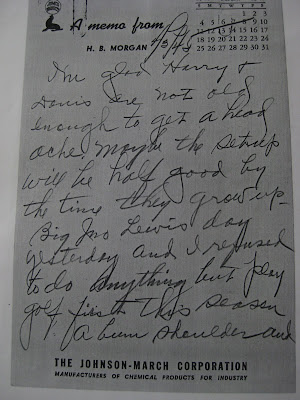 1 2 3
4 5 6 7 8 9 10
11 12 13 14 15 16 17
25 26 27 28 29 30 31
A memo from
H. B. MORGAN
I'm glad Harry &
are not old
enough to get a head
ache. Maybe the setup
will be half good by
the time they grow up -
Big Jno Lewis day
yesterday and I refused
to do anything but play
golf, first this season
A bum shoulder and
THE JOHNSON-MARCH CORPORATION
MANUFACTURERS OF CHEMICAL PRODUCTS FOR INDUSTRY